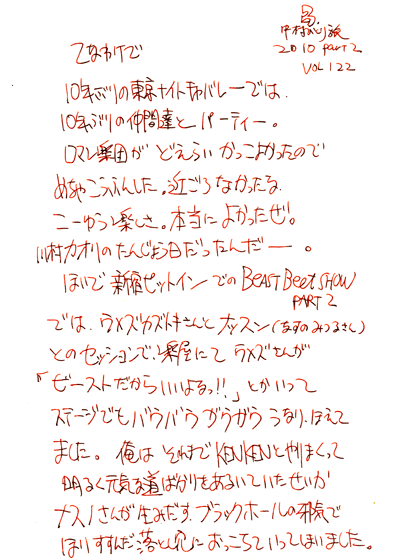 中村達也 旅
2010 part2
VOL 122
てなわけで
10年ぶりの東京ナイトキャバレーでは、
10年ぶりの仲間達とパーティー。
ロマン楽団が どえらい かっこよかったので
めちゃこうふんした。近ごろなかったな
こーゆう楽しさ。本当によかったぜ!。
川村カオリのたんじょう日だったんだー。
ほいで 新宿ピットインでのBEAST Beet SHOW
PART 2
では、ウメズカズトキさんとナッスン(なすのみつるさん)
とのセッションで、楽屋にて ウメズさんが
「ビーストだから いいよなっ!!」とかいって
ステージでもバウバウ ガウガウ うなり、ほえて
ました。俺は それまで KENKENとやりまくって
明るく元気な道ばかりをあるいていたせいか
ナスノさんが生みだす、ブラックホールの邪気で
ほいすすんだ落とし穴におっこちていってしまいました。